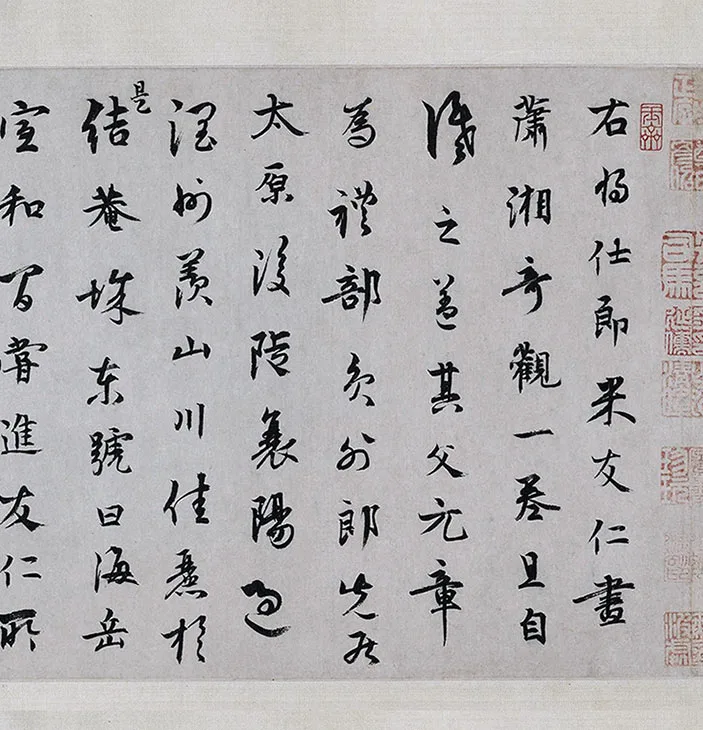 右将仕郎米友仁畫
蕭湘奇觀一卷且自
識之盖其父元章
為禮部員外郎先居
太原後襄陽過
潤州羨山川佳麗於
是結菴城东號曰海岳
宣和間嘗進友仁所